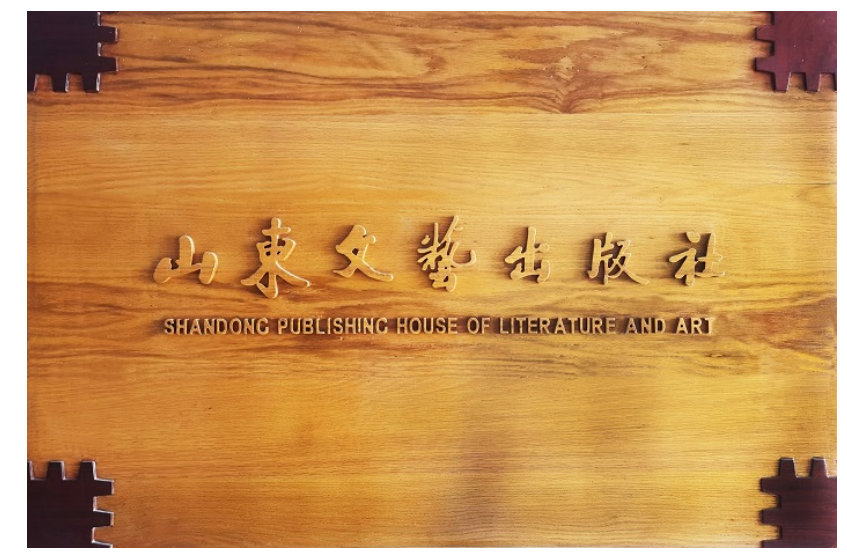 山東文藝出版社
SHANDONG PUBLISHING HOUSE OF LITERATURE AND ART